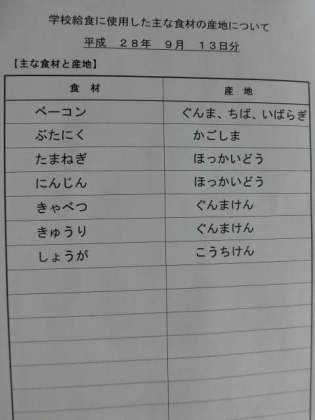 学校給食に使用した主な食材の産地について
平成　２８年　９月　１３日分
【主な食材と産地】
食　材　産　地
ベーコン　ぐんま、ちば、いばらぎ
ぶたにく　かごしま
たまねぎ　ほっかいどう
にんじん　ほっかいどう
きゃべつ　ぐんまけん
きゅうり　ぐんまけん
しょうが　こうちけん